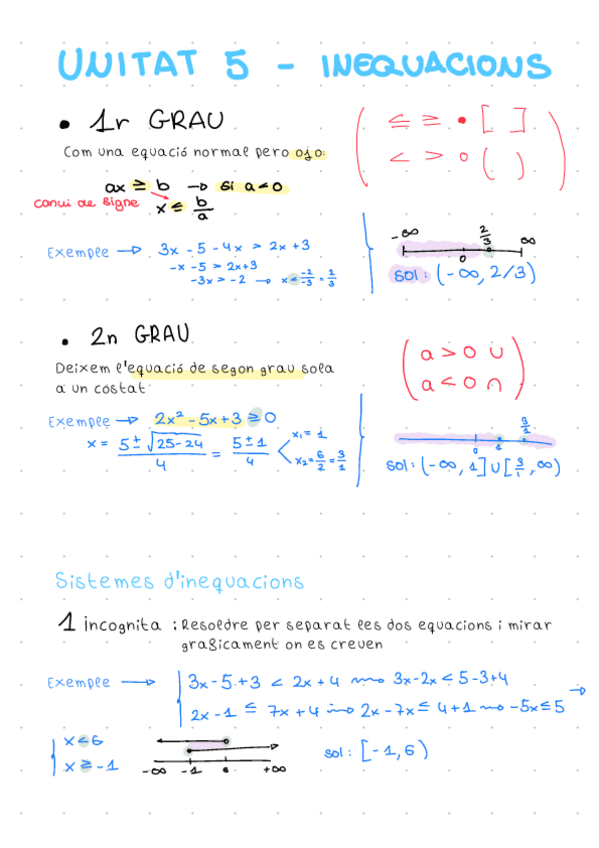 UNITAT 5 - INEQUACIONS
• 1r GRAU
Com una equació normal pero ojo:
ax ≥ b → si a<0
canvi de signe x ≤ b/a
( ≤ ≥ • [ ]
< > o ( ) )
Exemple → 3x - 5 - 4x > 2x + 3
-x - 5 > 2x+3
-3x > -2 → x < -2/-3 = 2/3
-∞ 0 2/3 ∞
sol: (-∞, 2/3)
• 2n GRAU
Deixem l'equació de segon grau sola
a un costat
( a > 0 ∪
a < 0 ∩ )
Exemple → 2x² - 5x + 3 ≥ 0
x = 5 ± √25-24 / 4 = 5 ± 1 / 4
x₁ = 1
x₂ = 6/2 = 3/1
0 1
sol: (-∞, 1] ∪ [3/1, ∞)
Sistemes d'inequacions
1 incognita : Resoldre per separat les dos equacions i mirar
graficament on es creuen
Exemple → 3x - 5 + 3 < 2x + 4 → 3x - 2x < 5 - 3 + 4
2x - 1 ≤ 7x + 4 → 2x - 7x ≤ 4 + 1 → -5x ≤ 5 →
x < 6
x ≥ -1
-∞ -1 6 +∞
sol: [-1, 6)